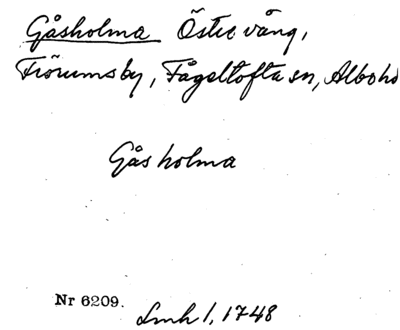 Gåsholma Östre vång,
Frörumsby, Fågeltofta sn, Albohd
Gåsholma
Nr 6209.
Lmh 1, 1748